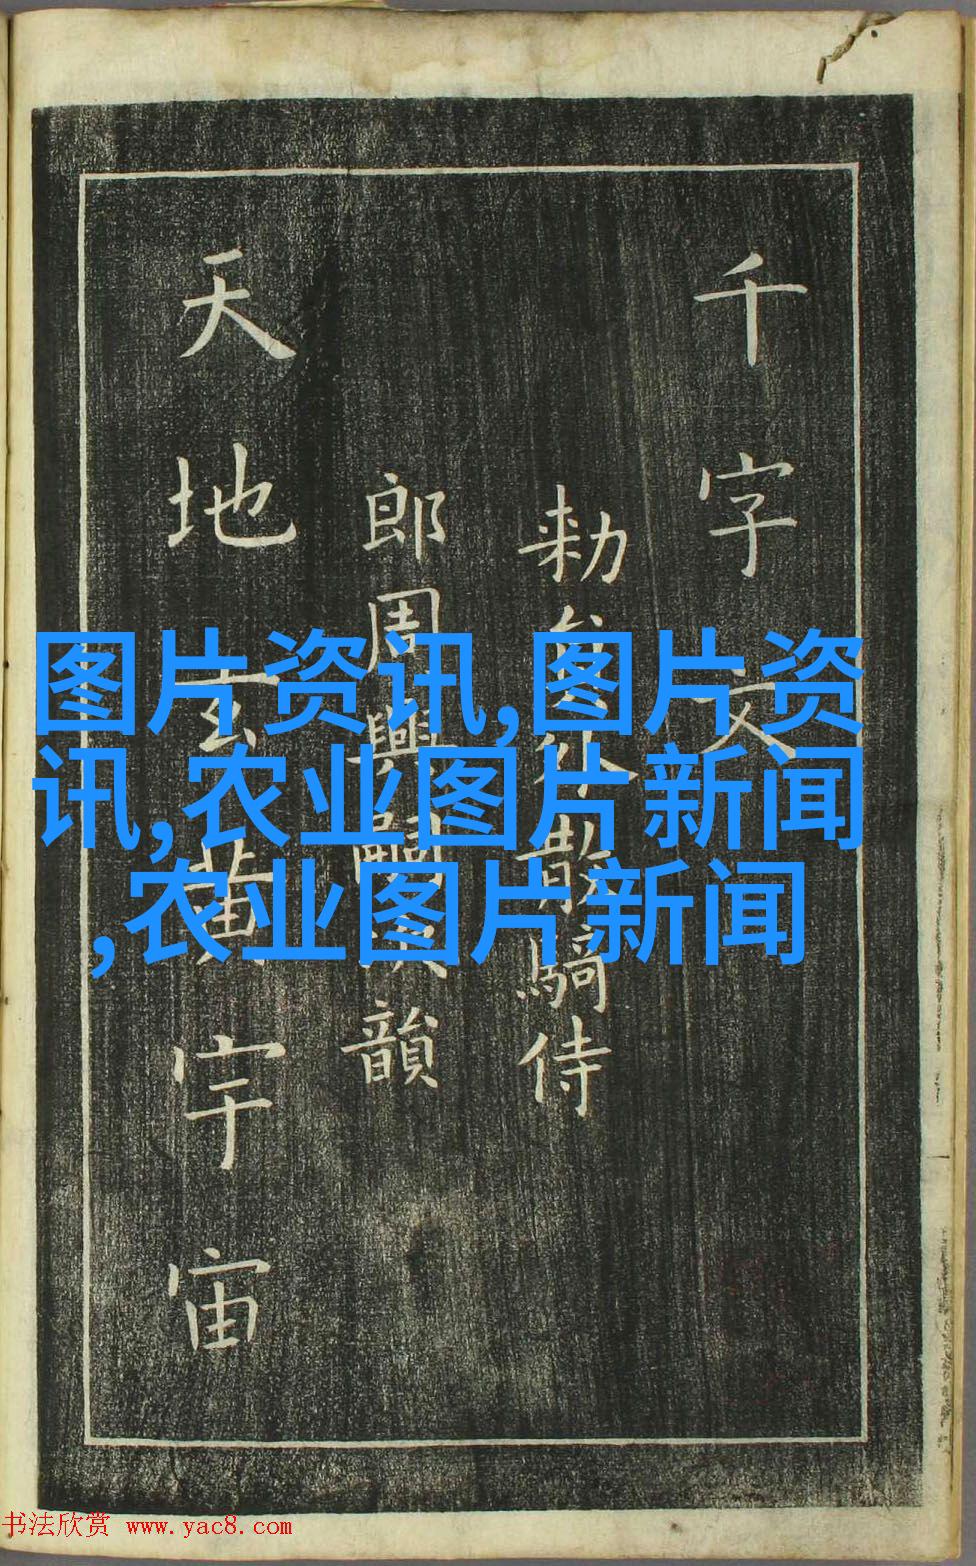 千字文
勑員外散騎侍
郎周興嗣次韻
天地玄黃宇宙
图片资讯,图片资
讯,农业图片新闻
,农业图片新闻
书法欣赏 www.yac8.com